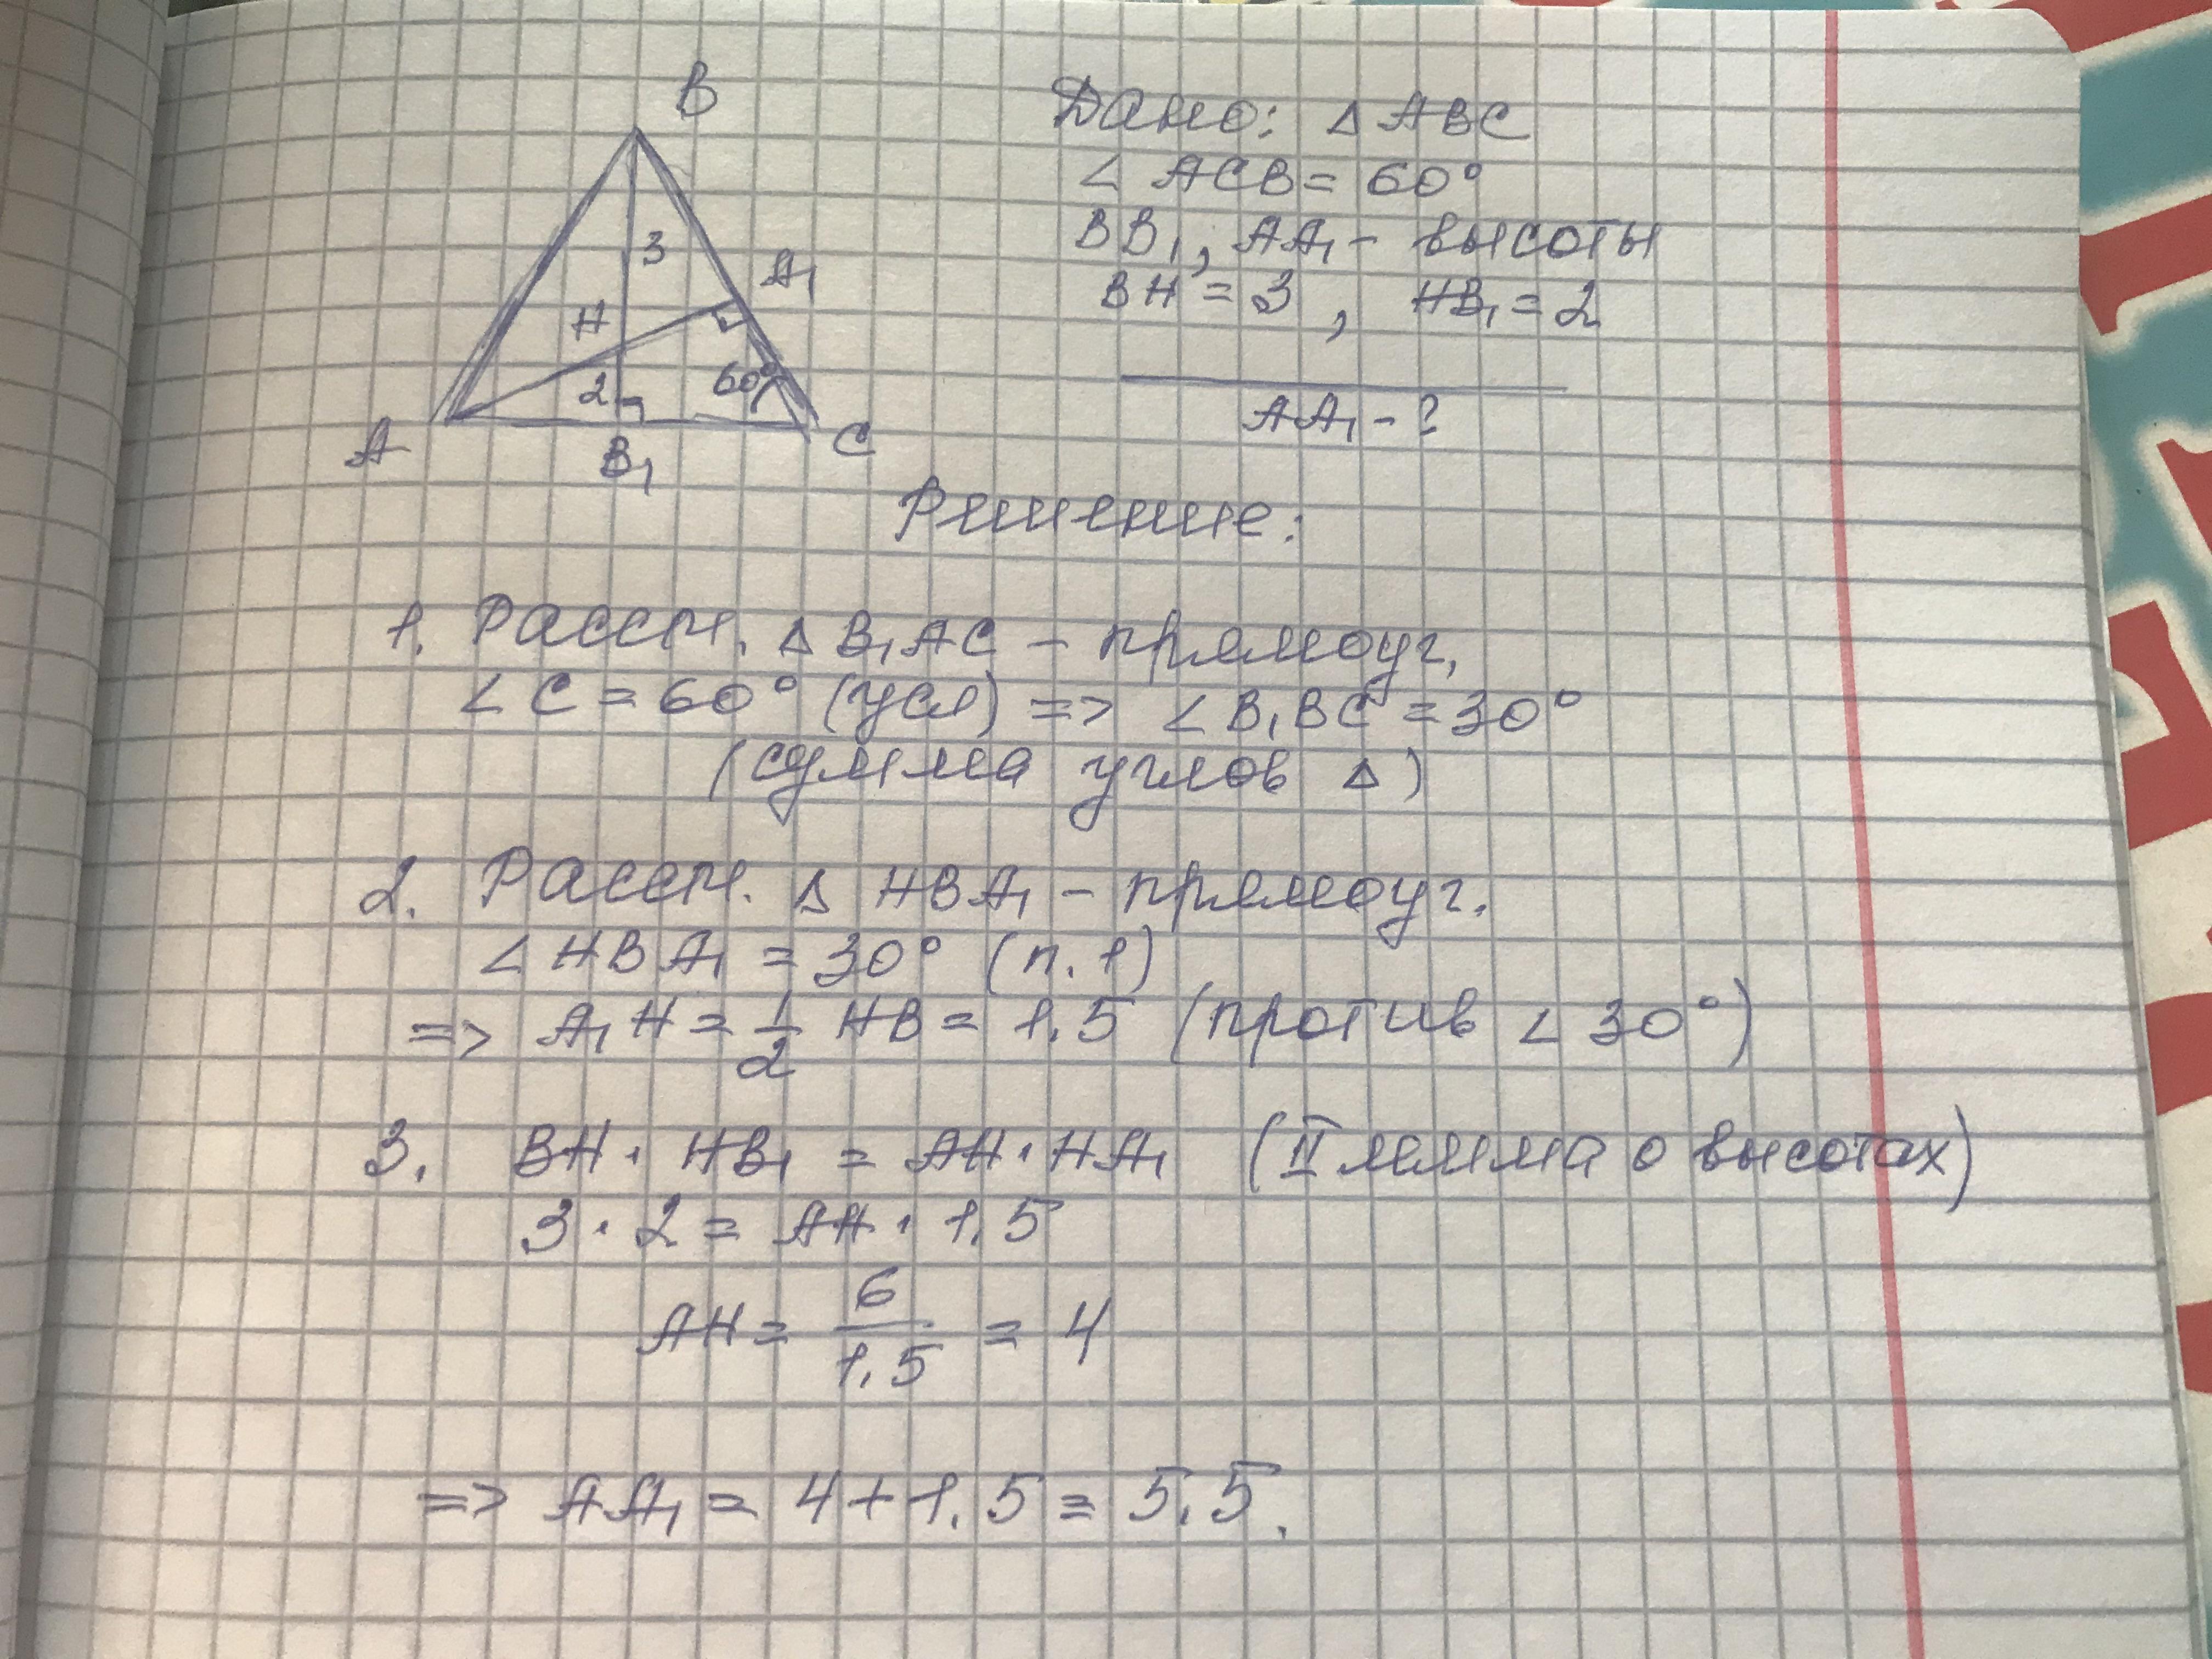 B
3
A₁
H
2
60°
A
B₁
C
Дано: △ ABC
∠ ACB = 60°
BB₁, AA₁ - высоты
BH = 3, HB₁ = 2
AA₁ - ?
Решение:
1. Рассм. △ B₁AC - прямоуг,
∠ C = 60° (усл) => ∠ B₁BC = 30°
(сумма углов △)
2. Рассм. △ HBA₁ - прямоуг.
∠ HBA₁ = 30° (п. 1)
=> A₁H = 1/2 HB = 1.5 (против ∠ 30°)
3. BH · HB₁ = AH · HA₁ (II лемма о высотах)
3 · 2 = AH · 1.5
AH = 6/1.5 = 4
=> AA₁ = 4 + 1.5 = 5.5.